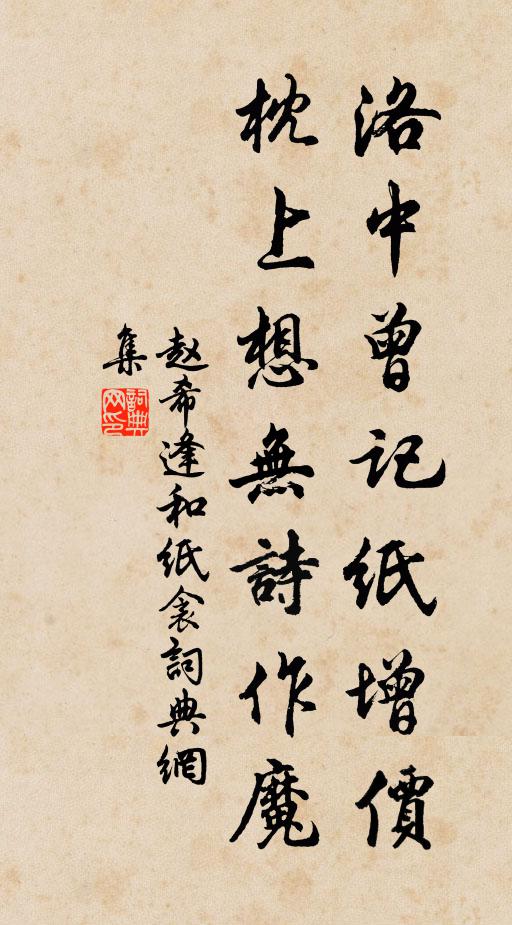 洛中曾记纸增價
枕上想無詩作魔
赵希逢和纸衾詞典網
集
詞典网印